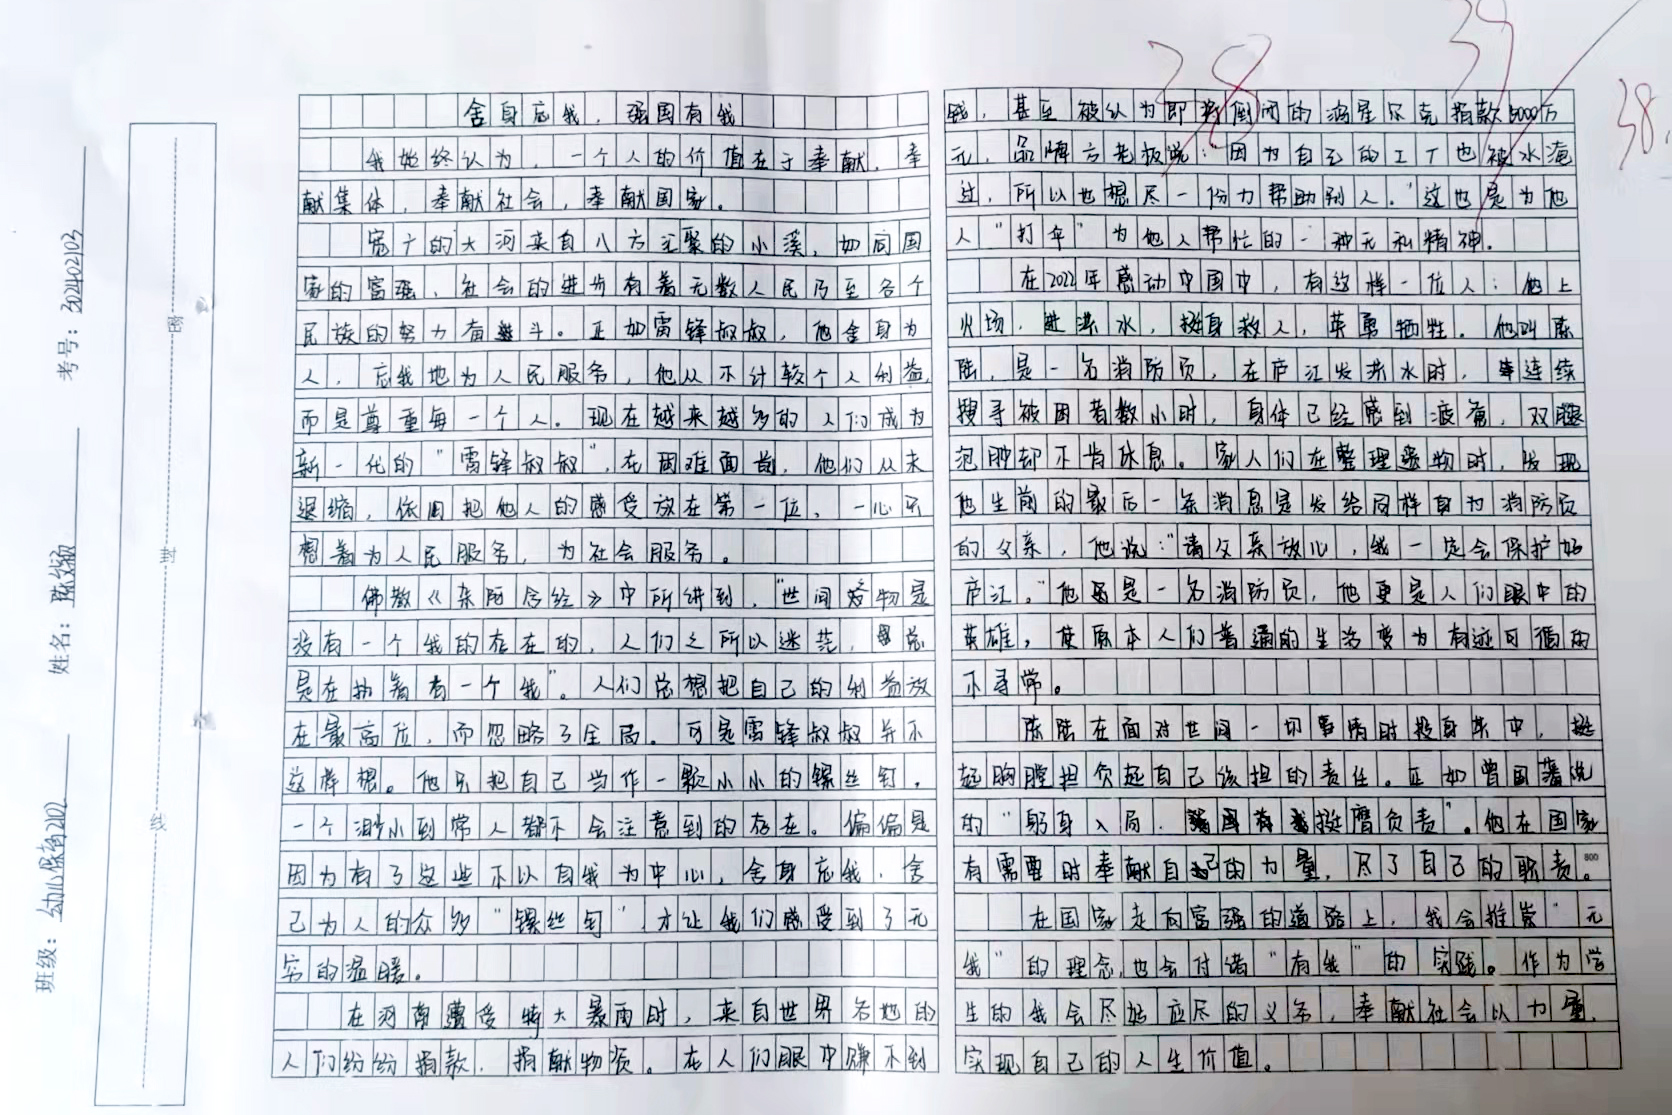 38
39
38.
班级：幼儿保育2102
姓名：
考号：
密
封
线
舍身忘我，强国有我
我始终认为，一个人的价值在于奉献，奉
献集体，奉献社会，奉献国家。
宽广的大河来自八方汇聚的小溪，如同国
家的富强、社会的进步有着无数人民乃至各个
民族的努力奋斗。正如雷锋叔叔，他舍身为
人，忘我地为人民服务，他从不计较个人利益，
而是尊重每一个人。现在越来越多的人们成为
新一代的“雷锋叔叔”，在困难面前，他们从未
退缩，依旧把他人的感受放在第一位，一心只
想着为人民服务，为社会服务。
佛教《杂阿含经》中所讲到，“世间万物是
没有一个我的存在的，人们之所以迷茫，总
是在执着有一个我”。人们总想把自己的利益放
在最高位，而忽略了全局。可是雷锋叔叔并不
这样想。他只把自己当作一颗小小的镙丝钉，
一个渺小到常人都不会注意到的存在。偏偏是
因为有了这些不以自我为中心，舍身忘我，舍
己为人的众多“镙丝钉”，才让我们感受到了无
穷的温暖。
在河南遭受特大暴雨时，来自世界各地的
人们纷纷捐款，捐献物资。在人们眼中赚不到
钱，甚至被认为即将倒闭的鸿星尔克捐款5000万
元，品牌方老板说：因为自己的工厂也被水淹
过，所以也想尽一份力帮助别人。“这也是为他
人“打伞”为他人帮忙的一种无私精神。
在2022年感动中国中，有这样一位人：他上
火场，进洪水，挺身救人，英勇牺牲。他叫陈
陆，是一名消防员，在庐江发洪水时，连续
搜寻被困者数小时，身体已经感到疲惫，双腿
泡肿却不肯休息。家人们在整理遗物时，发现
他生前的最后一条消息是发给同样身为消防员
的父亲，他说：“请父亲放心，我一定会保护好
庐江。”他是一名消防员，他更是人们眼中的
英雄，使原本人们普通的生活变为有迹可循的
不寻常。
陈陆在面对世间一切事情时投身其中，挺
起胸膛担负起自己该担的责任。正如曾国藩说
的“躬身入局，挺膺负责”。他在国家
有需要时奉献自己的力量，尽了自己的职责。
800
在国家走向富强的道路上，我会推崇“无
我”的理念，也会付诸“有我”的实践。作为学
生的我会尽好应尽的义务，奉献社会以力量，
实现自己的人生价值。